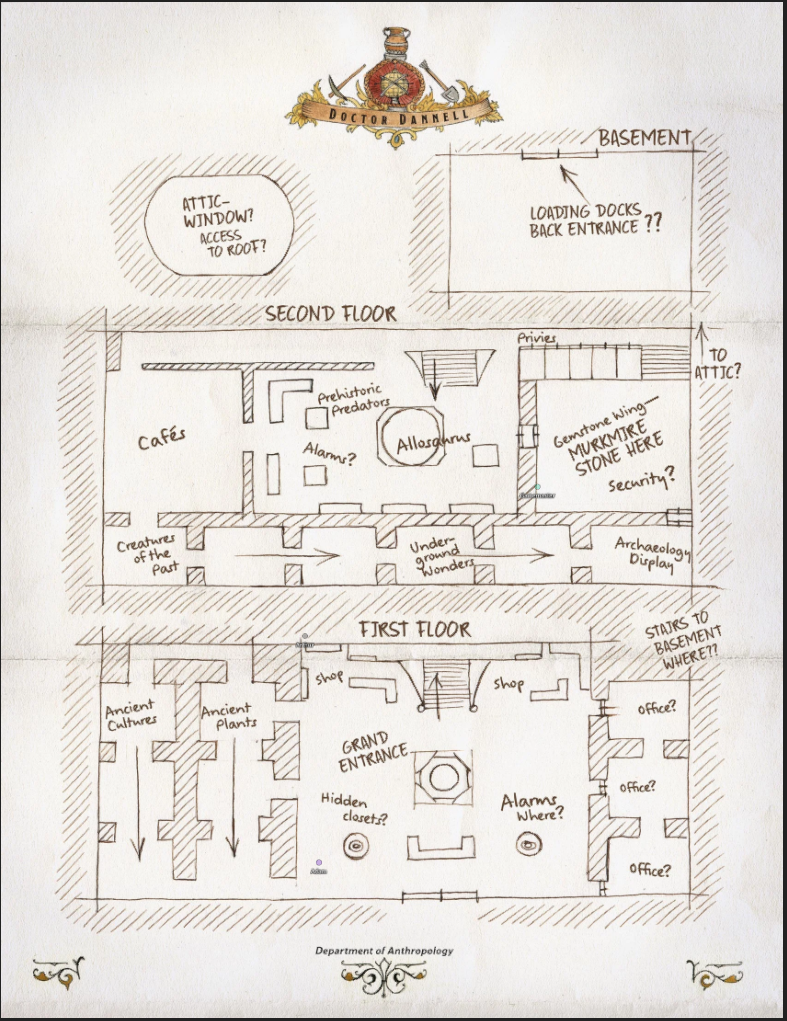 DOCTOR DANNELL
BASEMENT
ATTIC-
WINDOW?
ACCESS
TO ROOF?
LOADING DOCKS
BACK ENTRANCE ??
SECOND FLOOR
Privies
TO
ATTIC?
Prehistoric
Predators
Cafés
Alarms?
Allosaurus
Gemstone Wing—
MURKMIRE
STONE HERE
security?
Creatures
of the
Past
Under-
ground
Wonders
Archaeology
Display
FIRST FLOOR
STAIRS TO
BASEMENT
WHERE??
Shop
Shop
Ancient
Cultures
Ancient
Plants
office?
GRAND
ENTRANCE
office?
Hidden
closets?
Alarms
Where?
Office?
Adam
Department of Anthropology